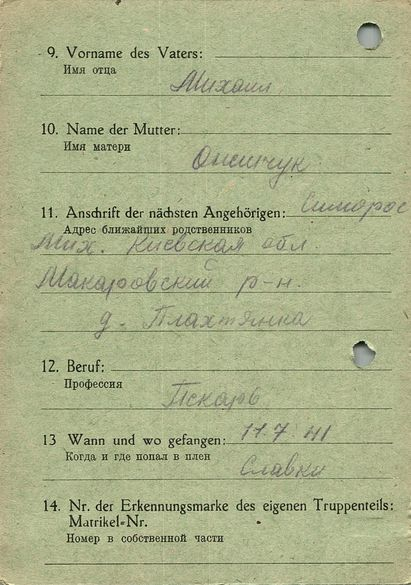 9. Vorname des Vaters:
Имя отца
Михаил
10. Name der Mutter:
Имя матери
Онищук
11. Anschrift der nächsten Angehörigen:
Адрес ближайших родственников
Мих. Киевская обл.
Макаровский р-н.
д. Плахтянка
12. Beruf:
Профессия
13 Wann und wo gefangen: 11.7.41
Когда и где попал в плен
14. Nr. der Erkennungsmarke des eigenen Truppenteils:
Matrikel-Nr.
Номер в собственной части